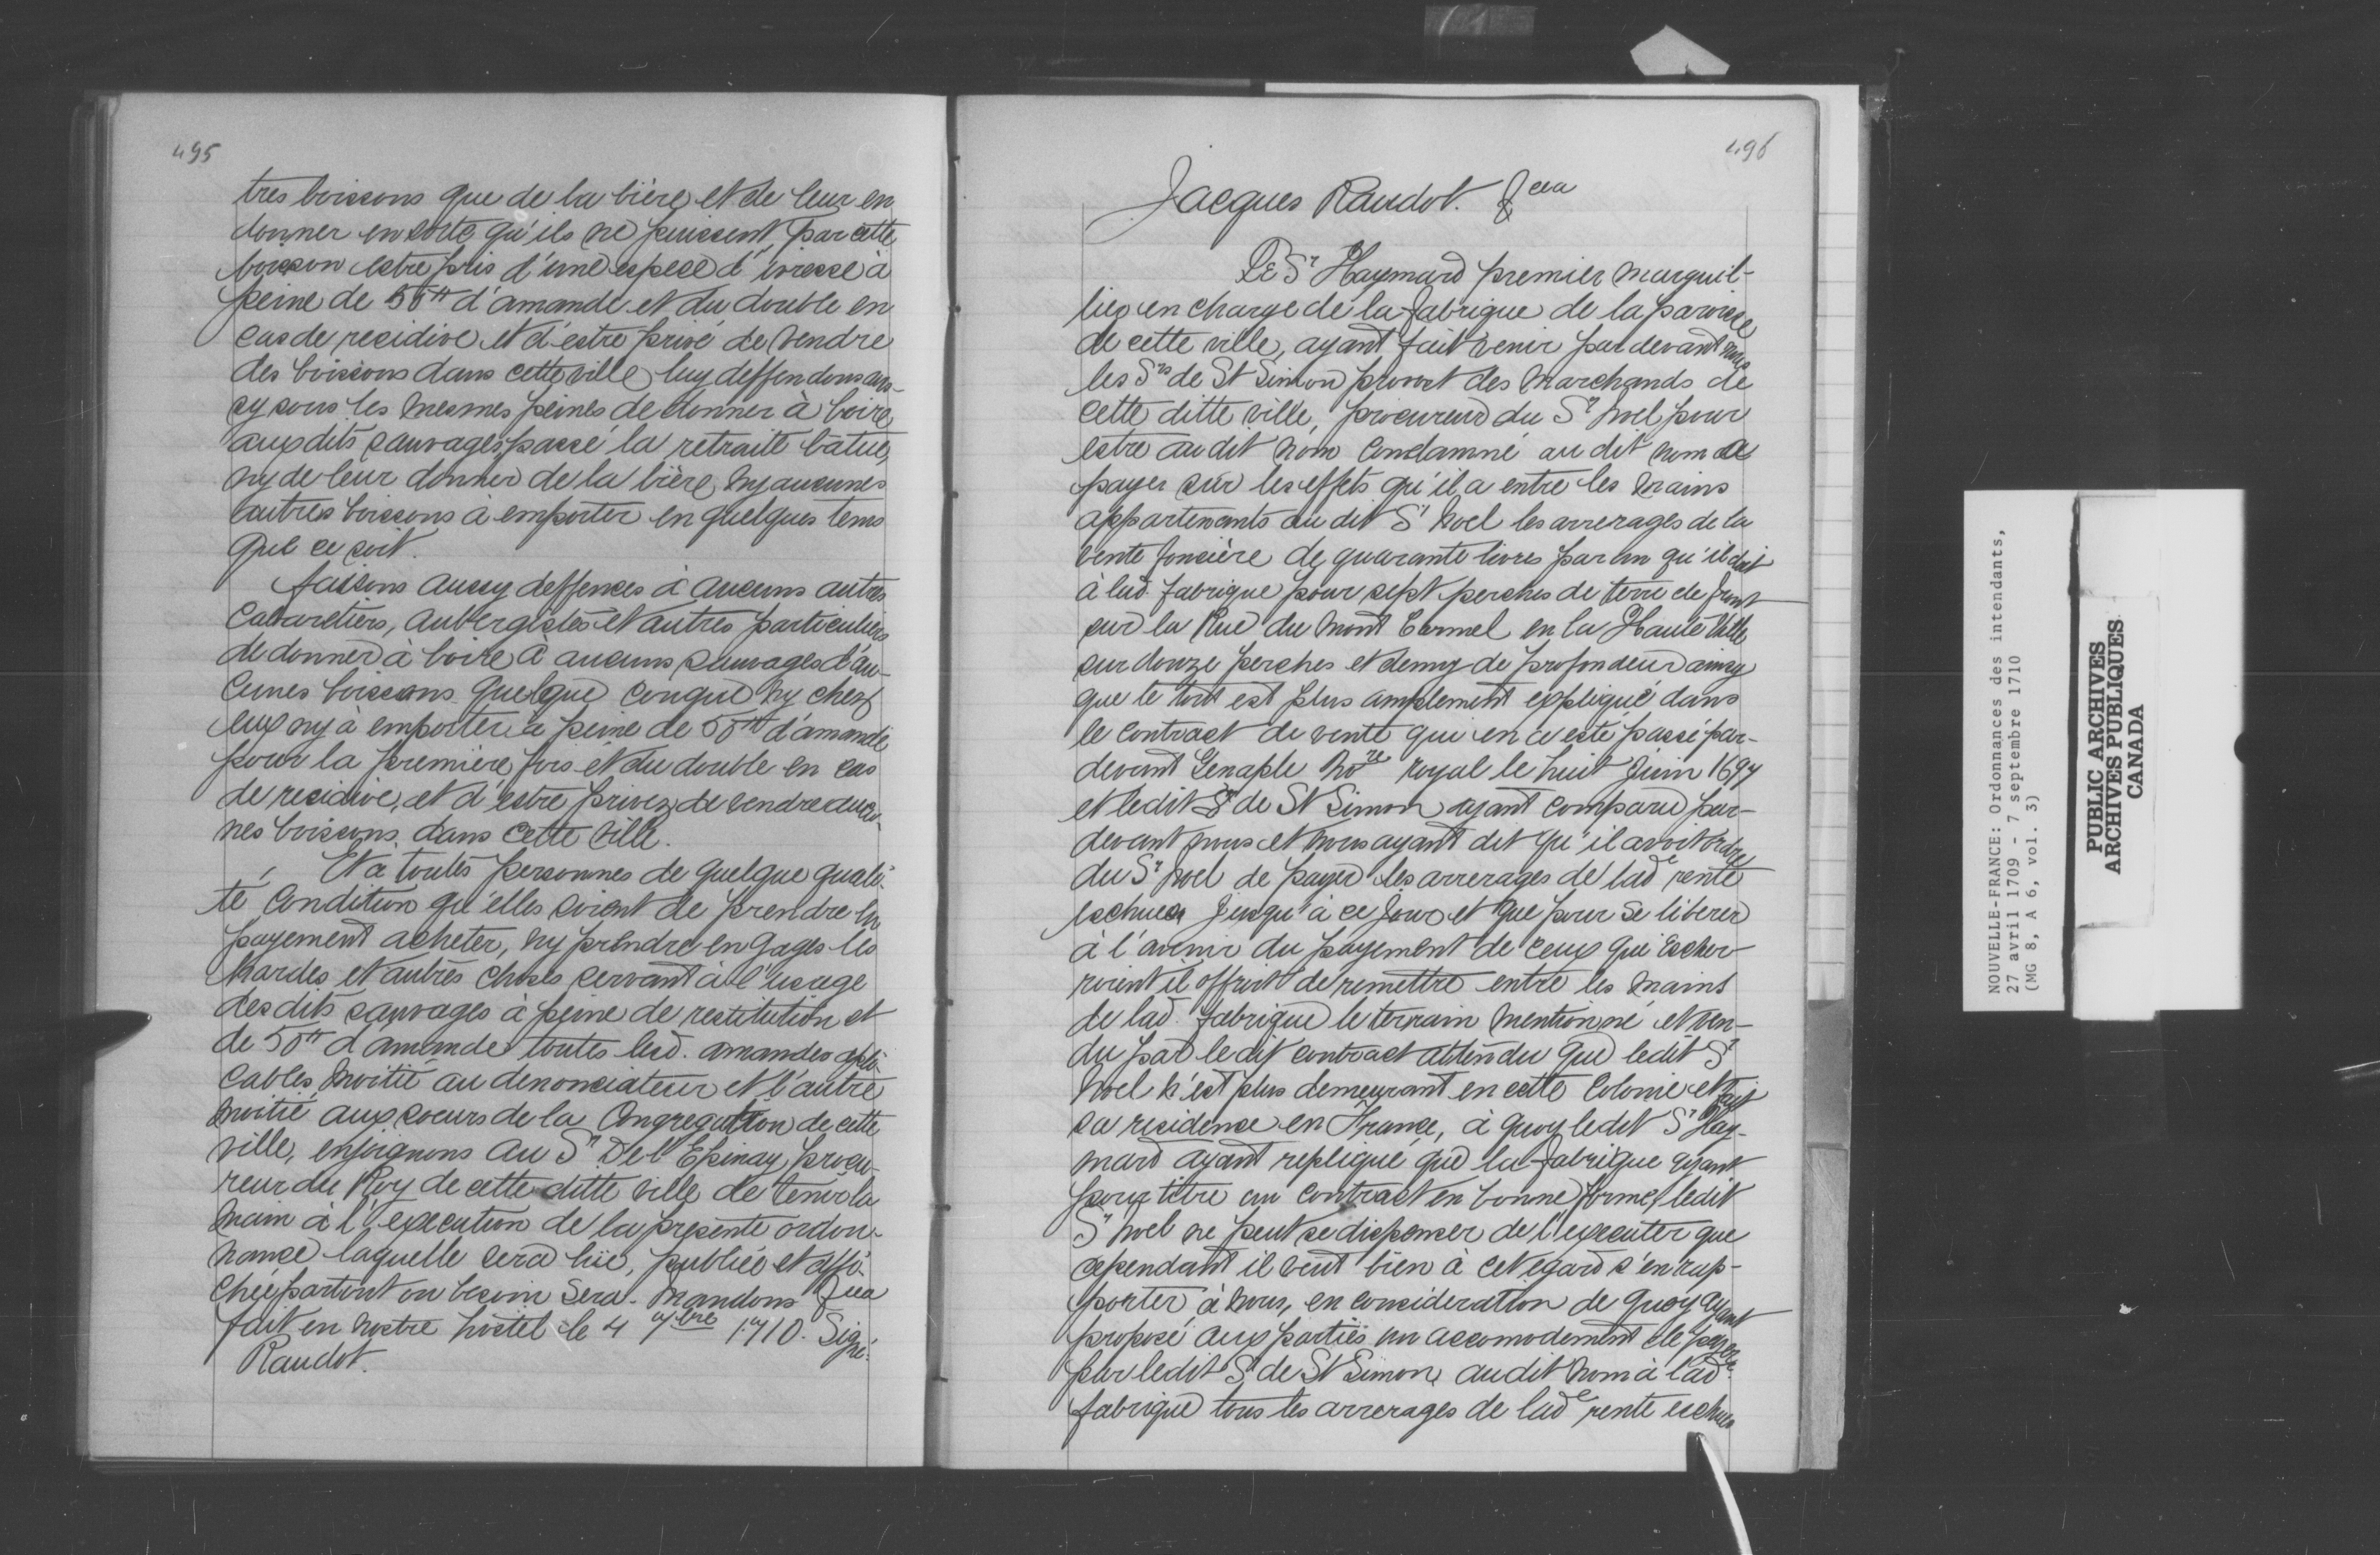 495
tres boissons que de la bière et de leur en
donner en sorte qu'ils ne puissent, par cette
boisson estre pris d'une espece d'ivresse à
peine de 50tt d'amande et du double en
cas de recidive et d'estre privé de vendre
des boissons dans cette ville luy deffendons aus-
sy sous les mesmes peines de donner à boire
auxdits sauvages passé la retraite batue,
ny de leur donner de la bière ny aucunes
autres boissons à emporter en quelques tems
que ce soit.
faisons aussy deffences à aucuns autres
Cabaretiers, aubergistes et autres particuliers
de donner à boire à aucuns sauvages d'au-
cunes boissons quelque conque ny chez
eux ny à emporter à peine de 50tt d'amande
pour la première fois et du double en cas
de recidive, et d'estre privez de vendre aucu-
nes boissons dans cette ville.
Et à toutes personnes de quelque quali-
té condition qu'elles soient de prendre en
payement acheter, ny prendre en gages les
hardes et autres choses servant à l'usage
desdits sauvages à peine de restitution et
de 50tt d'amande toutes lesd. amandes apli-
cables moitié au denonciateur et l'autre
moitié aux soeurs de la Congregation de cette
ville, enjoignons au Sr de l'Epinay procu-
reur du Roy de cette ditte ville de tenir la
main à l'execution de la presente ordon-
nance laquelle sera lüe, publiée et affi-
chée partout ou besoin sera. Mandons &ca
fait en nostre hostel le 4 7bre 1710. Signé:
Raudot.
496
Jacques Raudot. &cca
Le Sr Haymard premier marguil-
lier en charge de la fabrique de la paroisse
de cette ville, ayant fait venir par devant nous
les Srs de St Simon provost des marchands de
cette ditte ville, procureur du Sr Noel pour
estre au dit nom condamné au dit nom de
payer sur les effets qu'il a entre les mains
appartenants au dit Sr Noel les arrerages de la
rente foncière de quarante livres par an qu'il doit
à lad. fabrique pour sept perches de terre de front
sur la Rue du Mont Carmel en la Haute Ville
sur douze perches et demy de profondeur ainsy
que le tout est plus amplement expliqué dans
le contract de vente qui en a esté passé par-
devant Genaple Nore royal le huit Juin 1697
et ledit Sr de St Simon ayant comparu par-
devant nous et nous ayant dit qu'il avoit ordre
du Sr Noel de payer les arrerages de lade rente
eschues jusqu'à ce jour et que pour se liberer
à l'avenir du payement de ceux qui escher-
roient il offroit de remettre entre les mains
de lad. fabrique le terrain mentionné et ven-
du par ledit contract attendu que ledit Sr
Noel n'est plus demeurant en cette Colonie et fait
sa residence en France, à quoy ledit Sr Hay-
mard ayant repliqué que la fabrique ayant
pour titre un contract en bonne forme, ledit
Sr Noel ne peut se dispenser de l'executer que
cependant il veut bien à cet egard s'en rap-
porter à nous, en consideration de quoy ayant
proposé aux parties un accomodement de payer
par ledit Sr de St Simon, audit nom à lade
fabrique tous les arrerages de lade rente eschues
NOUVELLE-FRANCE: Ordonnances des intendants,
27 avril 1709 - 7 septembre 1710
(MG 8, A 6, vol. 3)
PUBLIC ARCHIVES
ARCHIVES PUBLIQUES
CANADA